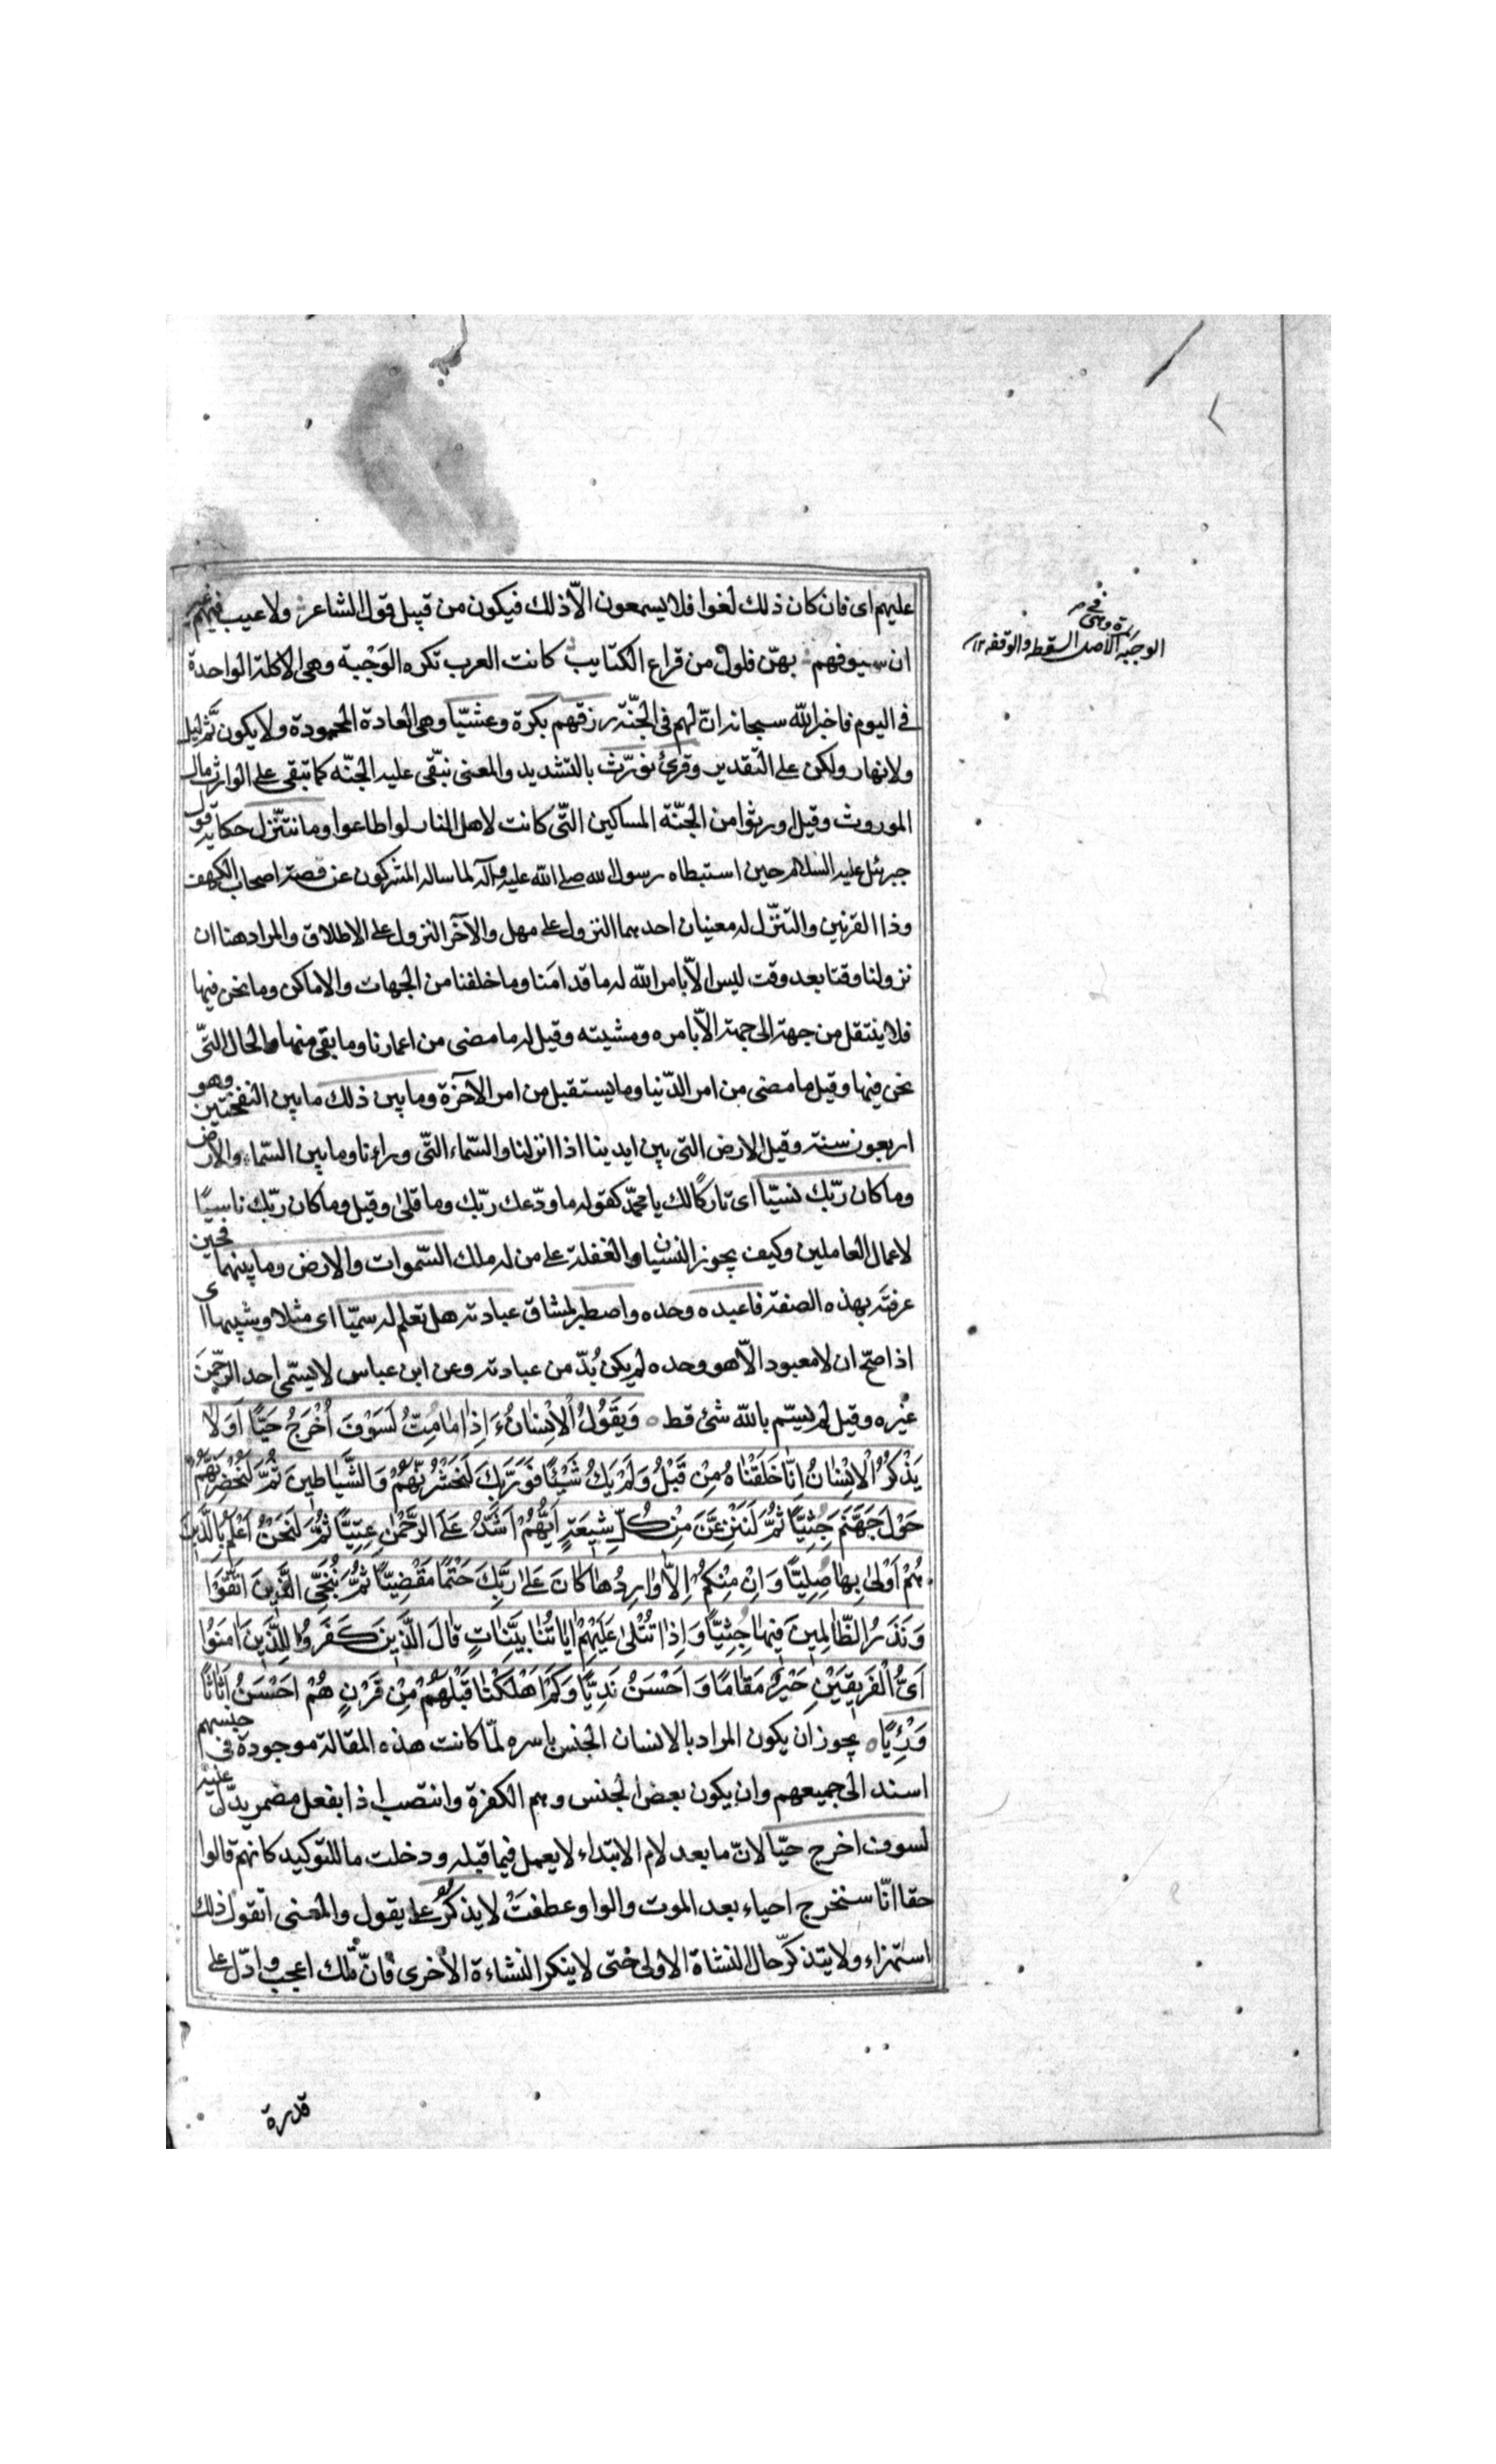 عليهم اى فان كان ذلك لغوا فلا يسمعون الّا ذلك فيكون من قبيل قول الشاعر ولا عيب فيهم غير
ان سيوفهم بهنّ فلول من قراع الكتايب كانت العرب تكره الوَجْبة وهى الاكلة الواحدة
فى اليوم فاخبر الله سبحانه انّ لهم فى الجنّة رزقهم بكرة وعشيّا وهى العادة المحمودة ولا يكون ثَمّ ليل
ولا نهار ولكن على التقدير وقرئ نورّث بالتشديد والمعنى نبّقى عليه الجنّه كما تبقى على الوارث مال
الموروث وقيل اورثوا من الجنّة المساكين التّى كانت لاهل النار لو اطاعوا وما نتنّزل حكاية قول
جبرئيل عليه السلام حين استبطاه رسول الله صلى الله عليه وآله لما ساله المشركون عن قصة اصحاب الكهف
وذا القرنين والتنزّل له معنيان احدهما النزول على مهل والآخر النزول على الاطلاق والمراد هنا ان
نزولنا وقتا بعد وقت ليس الّا بامر الله له ما قدامَنا وما خلفنا من الجهات والاماكن وما نحن فيها
فلا ينتقل من جهة الى جهة الّا بامره ومشيته وقيل له ما مضى من اعمارنا وما بقى منها والحال التّى
نحن فيها وقيل ما مضى من امر الدّنيا وما يستقبل من امر الآخرة وما بين ذلك ما بين النفختين وهو
اربعون سنة وقيل الارض التى بين ايدينا اذا انزلنا والسّماء التّى وراءنا وما بين السّماء والارض
وما كان ربّك نسيّا اى تاركًا لك يا محمّد كقوله ما ودّعك ربّك وما قلىٰ وقيل وما كان ربّك ناسيًا
لاعمال العاملين وكيف يجوز النسيان والغفلة على من له ملك السّموات والارض وما بينهما فحين
عرفتَه بهذه الصفة فاعبده وحده واصطبر لمشاق عبادته هل تعلم له سميّا اى مثلا وشبيها اى
اذا صحّ ان لا معبود الّا هو وحده لم يكن بُدّ من عبادته وعن ابن عباس لا يسّمى احد الرّحمٰنَ
غيره وقيل لم يسّم بالله شئ قط وَيَقُولُ الْاِنْسٰانُ ءَاِذٰا مٰا مِتُّ لَسَوْفَ اُخْرَجُ حَيًّا اَوَلٰا
يَذْكُرُ الْاِنْسٰانُ اِنّٰا خَلَقْنٰاهُ مِنْ قَبْلُ وَلَمْ يَكُ شَيْئًا فَوَرَبِّكَ لَنَحْشُرَنَّهُمْ وَالشَّيٰاطِينَ ثُمَّ لَنُحْضِرَنَّهُمْ
حَوْلَ جَهَنَّمَ جِثِيًّا ثُمَّ لَنَنْزِعَنَّ مِنْ كُلِّ شِيعَةٍ اَيُّهُمْ اَشَدُّ عَلَى الرَّحْمٰنِ عِتِيًّا ثُمَّ لَنَحْنُ اَعْلَمُ بِالَّذِينَ
هُمْ اَوْلىٰ بِهٰا صِلِيًّا وَاِنْ مِنْكُمْ اِلّٰا وٰارِدُهٰا كٰانَ عَلىٰ رَبِّكَ حَتْمًا مَقْضِيًّا ثُمَّ نُنَجِّى الَّذِينَ اتَّقَوْا
وَنَذَرُ الظّٰالِمِينَ فِيهٰا جِثِيًّا وَاِذٰا تُتْلىٰ عَلَيْهِمْ اٰيٰاتُنٰا بَيِّنٰاتٍ قٰالَ الَّذِينَ كَفَرُوا لِلَّذِينَ اٰمَنُوا
اَىُّ الْفَرِيقَيْنِ خَيْرٌ مَقٰامًا وَاَحْسَنُ نَدِيًّا وَكَمْ اَهْلَكْنٰا قَبْلَهُمْ مِنْ قَرْنٍ هُمْ اَحْسَنُ اَثٰاثًا
وَرِئْيًا يجوز ان يكون المراد بالانسان الجنس باسره لمّا كانت هذه المقالة موجودة فى جنسهم
اسند الى جميعهم وان يكون بعض الجنس وهم الكفرة وانتصب اذا بفعل مضمر يدّل عليه
لسوف اخرج حيّا لانّ ما بعد لام الابتداء لا يعمل فيما قبله ودخلت ما للتوكيد كانهم قالوا
حقا انّا سنخرج احياء بعد الموت والواو عطفتْ لا يذكرُ على يقول والمعنى اتقول ذلك
استهزاء ولا يتذكّر حال النشاة الاولى حتى لا ينكر النشاءة الأخرى فانّ تلك اعجب وادّل على
قدرة
الوجبة الاصل السقطه والوقفه ١٢